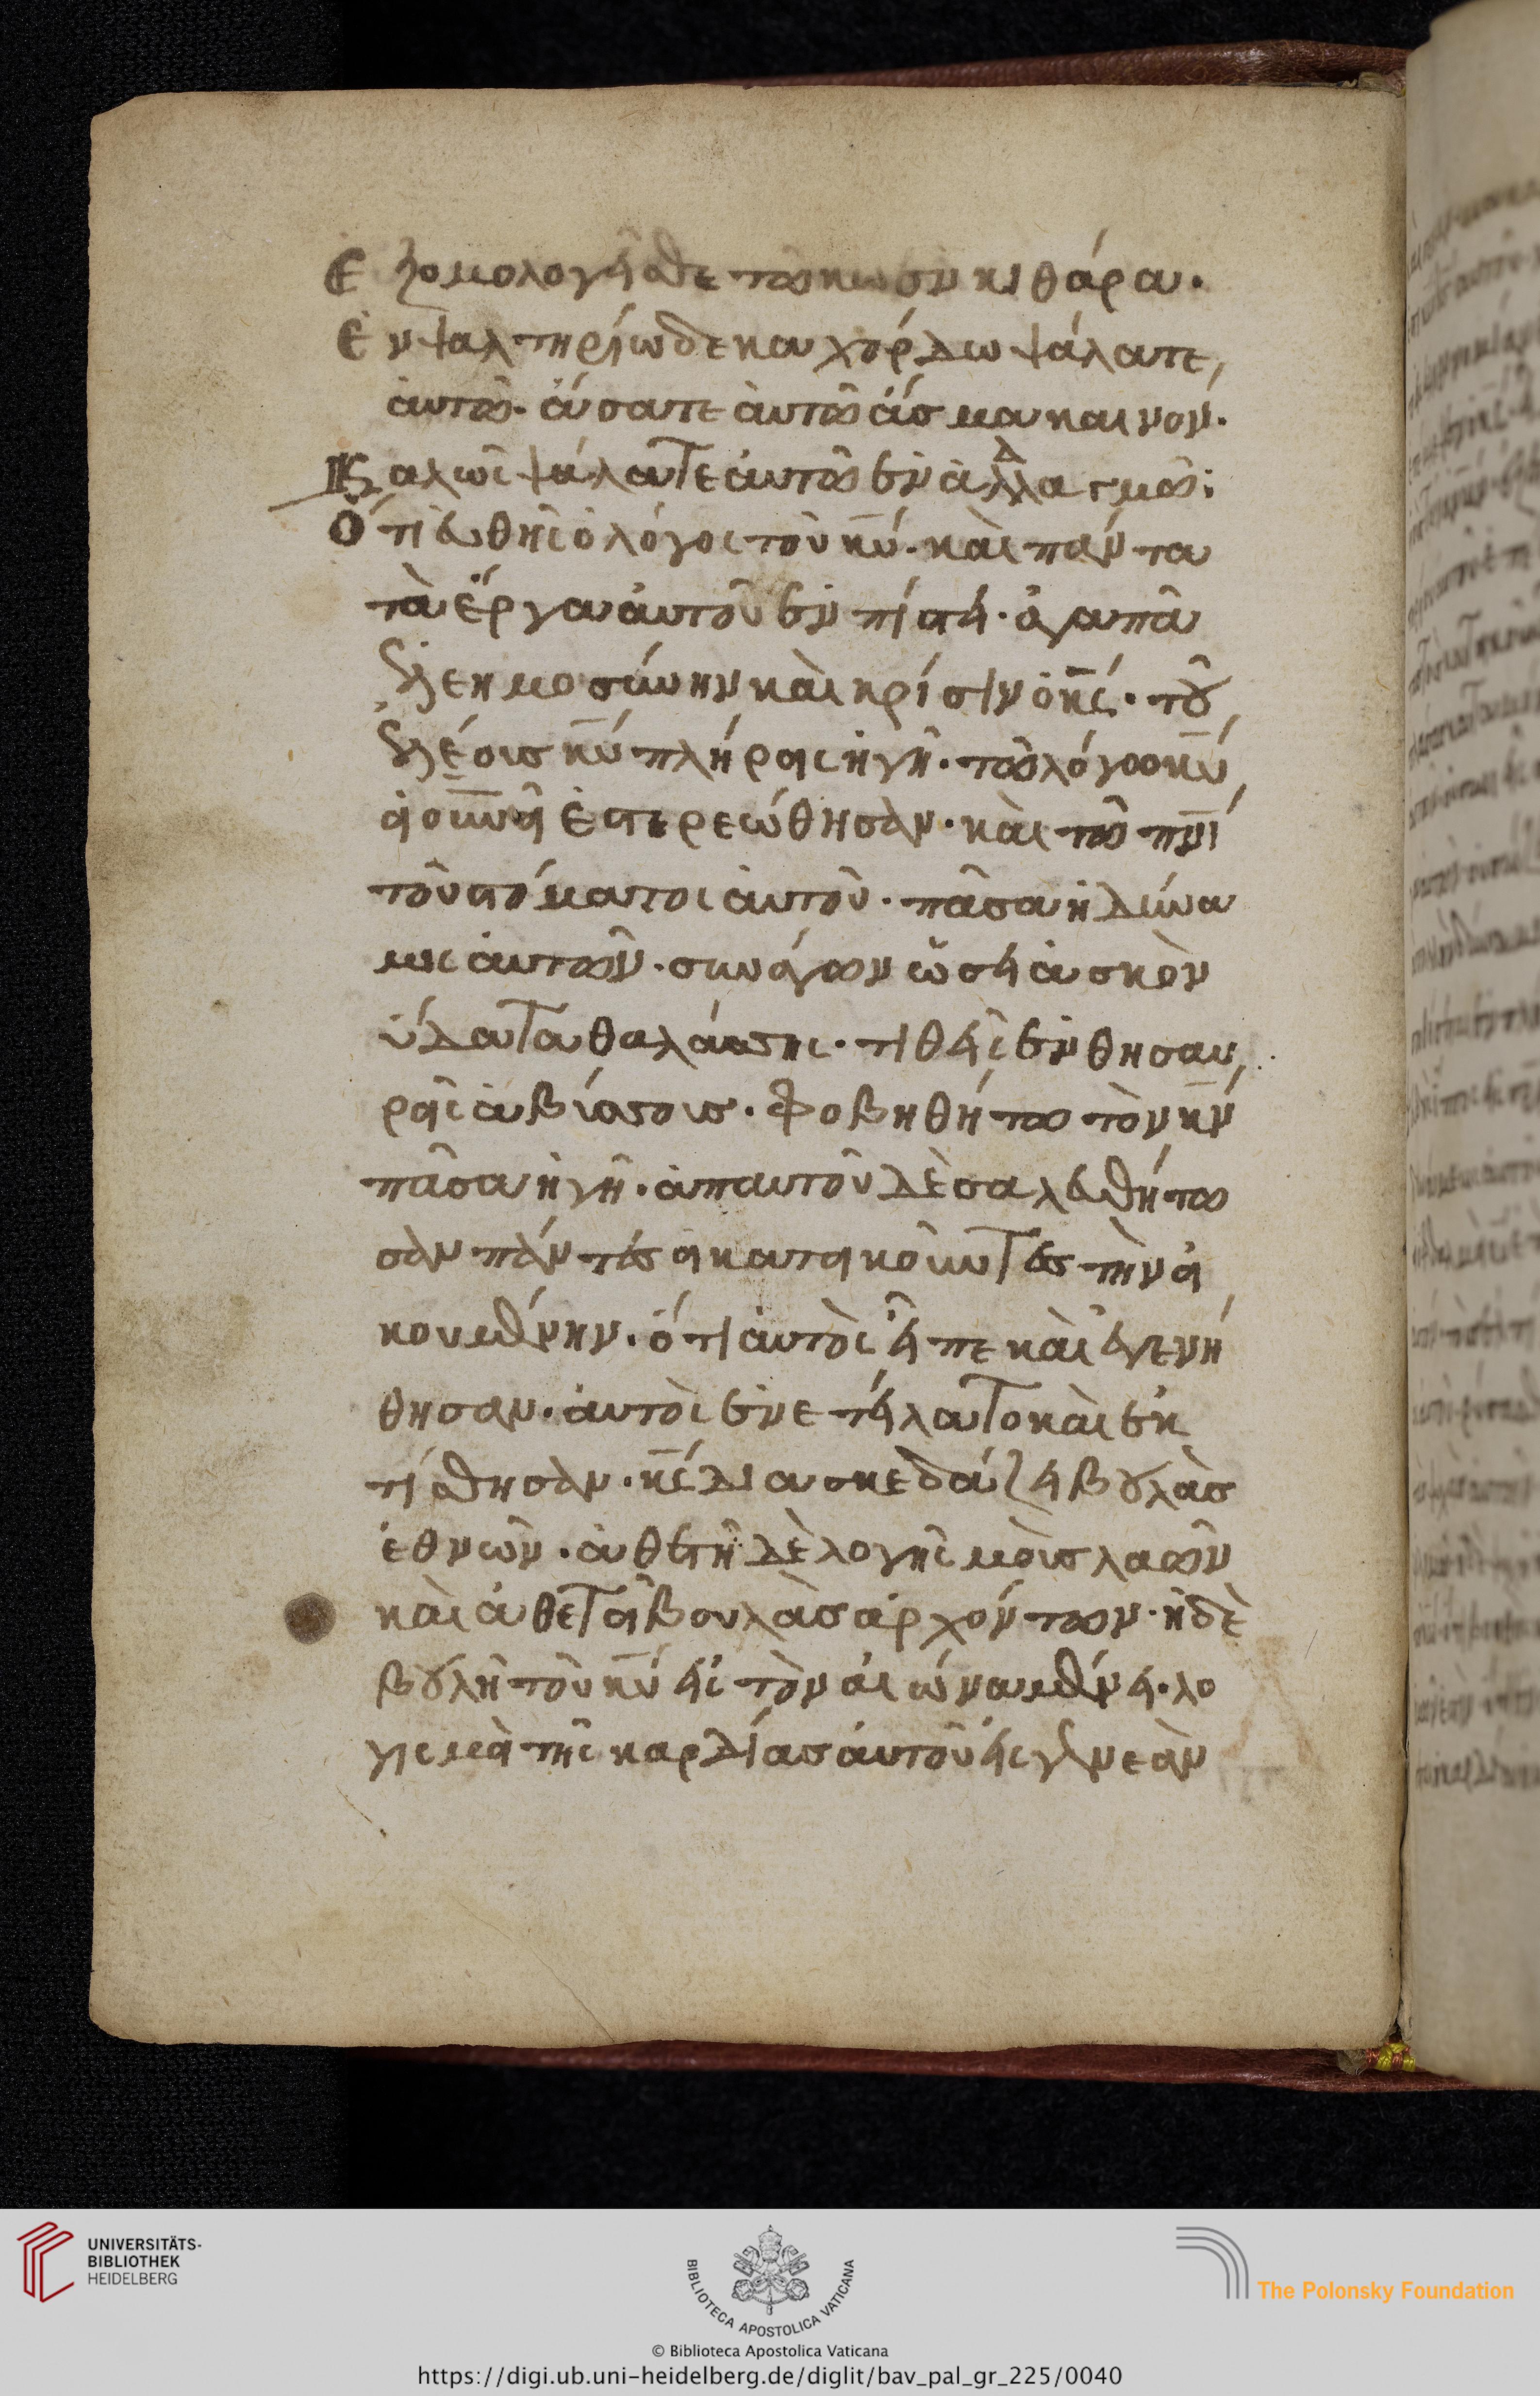 Ἐξομολογεῖσθε τῶ κω ἐν κιθάρα.
Ἐν ψαλτηρίω δεκαχόρδω ψάλατε
ἀυτῶ. ἄσατε ἀυτῶ ἄσμα καινον.
Καλῶς ψάλατε ἀυτῶ ἐν ἀλλαγμῶ:
Ὅτι ἐυθὴς ὁ λόγος τοῦ κύ. καὶ πάντα
τὰ ἔργα ἀυτοῦ ἐν πίστει. ἀγαπᾶ
ἐλεημοσύνην καὶ κρίσιν ὁ κς. τοῦ
ἐλέους κύ πλήρης ἡ γῆ. τῶ λόγω κύ
οἱ οὐνοὶ ἐστερεώθησαν. καὶ τῶ πνι
τοῦ στόματος ἀυτοῦ. πᾶσα ἡ δύνα
μις ἀυτῶν. συνάγων ὥσει ἀσκὸν
ὕδατα θαλάσσης. τιθεὶς ἐν θησαυ
ροῖς ἀβύσσους. Φοβηθήτω τὸν κν
πᾶσα ἡ γῆ. ἀπ αυτοῦ δὲ σαλευθήτω
σαν πάντες οἱ κατοικοῦντες τὴν ὀι
κουμένην. ὅτι ἀυτὸς εἶπε καὶ ἐγενή
θησαν. ἀυτὸς ἐνετείλατο καὶ ἐκ
τίσθησαν. κς διασκεδάζει βουλὰς
ἐθνῶν. ἀθετῆ δὲ λογησμοὺς λαῶν
καὶ ἀθετεῖ βουλὰς ἀρχόντων. ἡ δὲ
βουλὴ τοῦ κύ εἰς τὸν αἰώνα μένει. λο
γισμοὶ τῆς καρδίας ἀυτοῦ εἰς γενεὰν
UNIVERSITÄTS-
BIBLIOTHEK
HEIDELBERG
BIBLIOTECA APOSTOLICA VATICANA
The Polonsky Foundation
© Biblioteca Apostolica Vaticana
https://digi.ub.uni-heidelberg.de/diglit/bav_pal_gr_225/0040